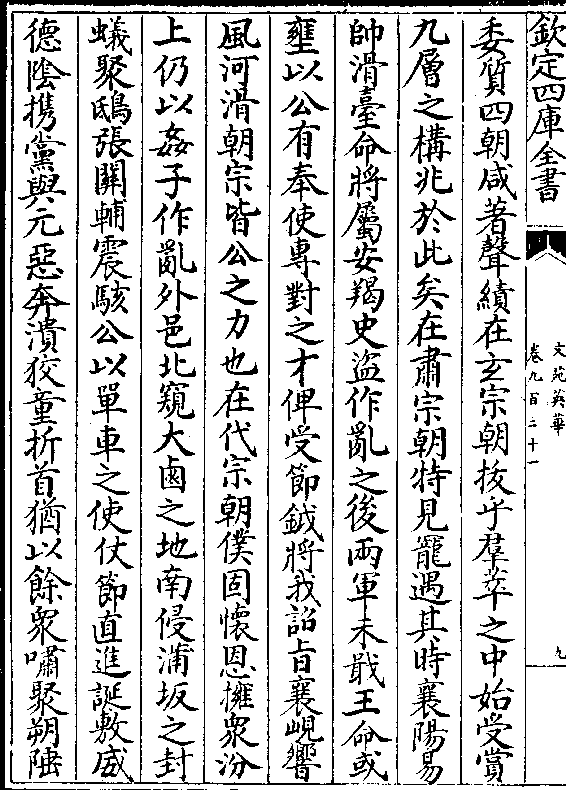 欽定四庫全書
文苑英華
卷九百二十一
九
委質四朝咸著聲績在玄宗朝拔乎羣萃之中始受賞
九層之構兆於此矣在肅宗朝特見寵遇其時襄陽易
帥滑臺命將屬安羯史盜作亂之後兩軍未戢王命或
壅以公有奉使專對之才俾受節鉞將我詔旨襄峴響
風河滑朝宗皆公之力也在代宗朝僕固懷恩擁衆汾
上仍以姦子作亂外邑北窺大鹵之地南侵蒲坂之封
蟻聚鴟張關輔震駭公以單車之使仗節直進誕敷威
德陰携黨與元惡奔潰狡童折首猶以餘衆嘯聚朔陲